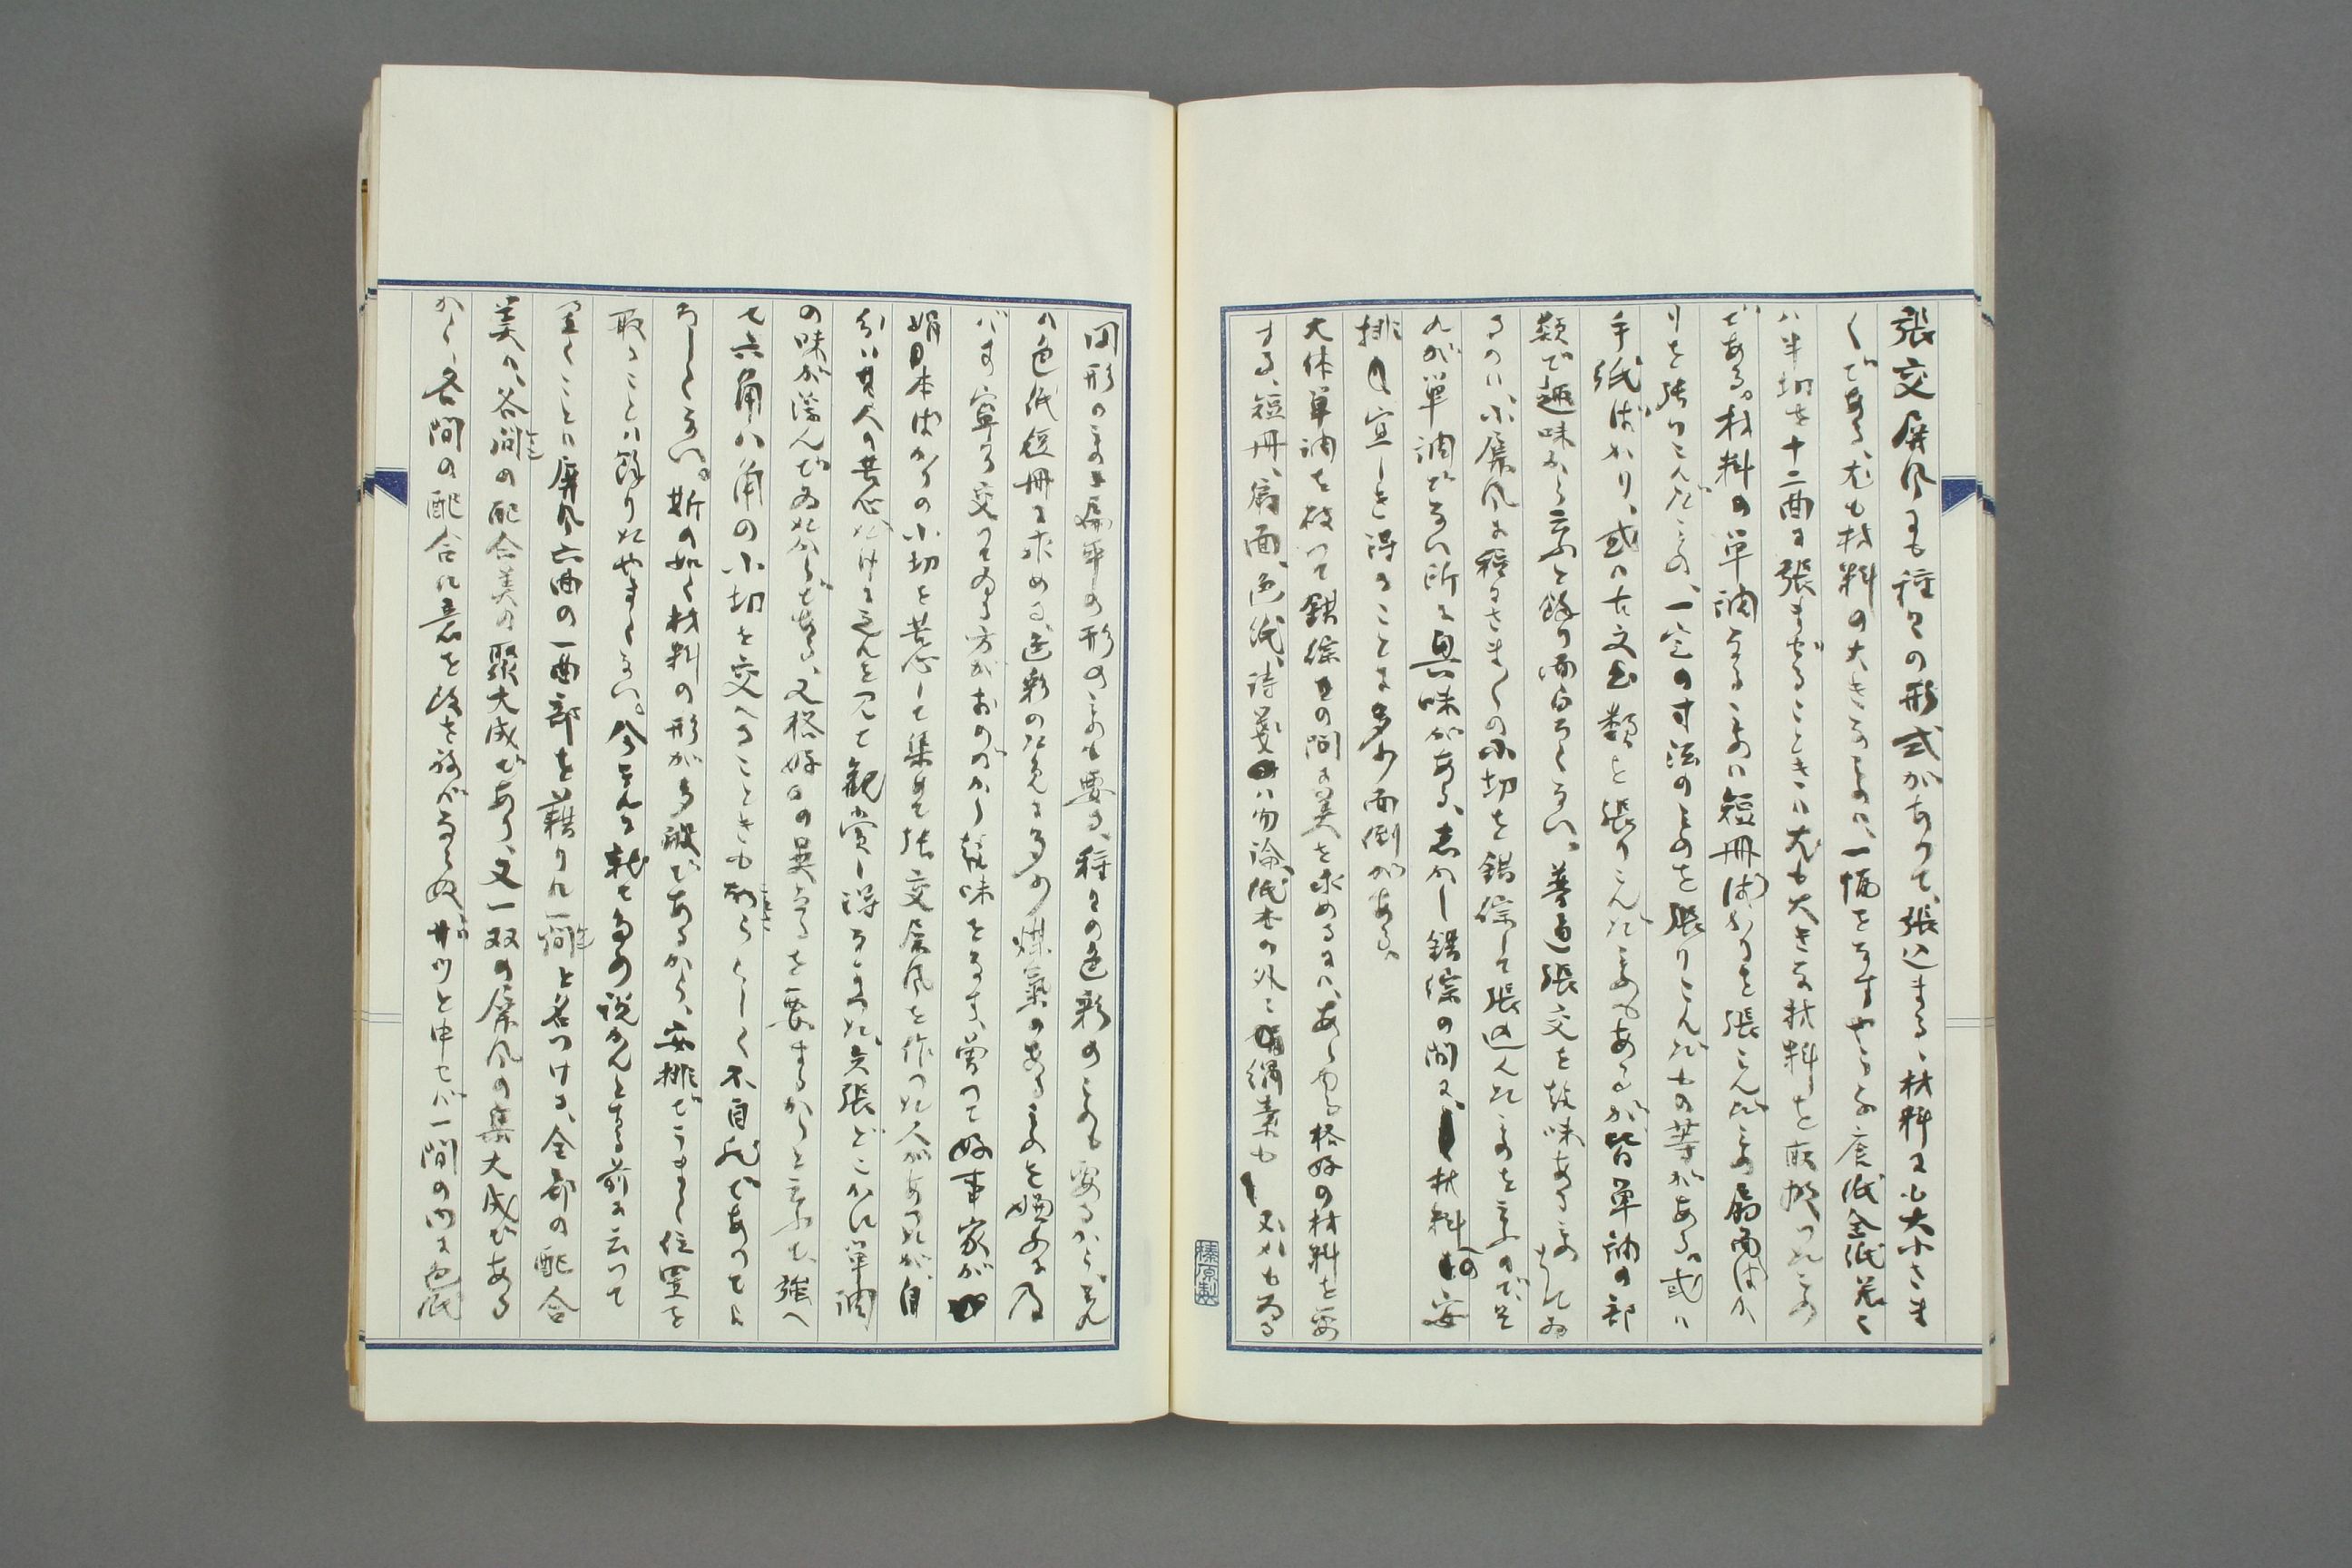 張交屏风にも種々の形式があつて、張込まる、材料にも大小さま
〱である、尤も材料の大きなものハ、一幅をなすやうな唐紙金紙若く
ハ半切を十二曲に張まぜることときハ尤も大きな材料を取扱つたもの
である。材料の単調なるものハ短冊ばかりを張こんだもの扇面ばか
りを張りこんだもの、一定の寸法のものを張りこんだもの等がある。或ハ
手紙ばかり、或ハ古文書類を張りこんだものもあるが皆単調の部
類で趣味から云ふと餘り面白ろくない。普通張交を趣味あるものとしてゐ
るのハ、小屏风に種々さま〱の小切を錯綜して張込んだものを云ふので、是
れが単調でない所に興味がある、しかし錯綜の間に、材料の安
排の宜しきを得ることに多少面倒がある。
大体単調を破つて錯綜の間に美を求めるには、あらゆる格好の材料を要
する、短冊、扇面、色紙、詩箋ハ勿論、紙本の外に絹素も
円形のもの扁平の形のものも要る、種々の色彩のものも要るから、どん
バす寧ろ交つてゐる方がおのづから趣味をなす、曽つて好事家が
絹本ばかりの小切を苦心して集めて張交屏风を作つた人があつたが、自
分ハ其人の苦心だけに之んを見て観賞し得なまつた、矢張どこかに単調
の味が潜んでゐたからである、又格好の異なるを要するからと云ふて、強へ
て六角八角の小切を交へることときも わざらしく不自然であつてよ
ろしくない。斯の如く材料の形が多般であるから、安排でうま〱位置を
取ることハ餘りたやすくない。今それに就て自分の説かんとする前に云つて
置くことハ屏风六曲の一曲部を藉りに一間と名つける、全部の配合
美ハ、各間の配合美の聚大成であり、又一双の屏风の集大成である
から、各間の配合に意を致さねバならぬ サツと申せバ一間の内に色紙
榛原製